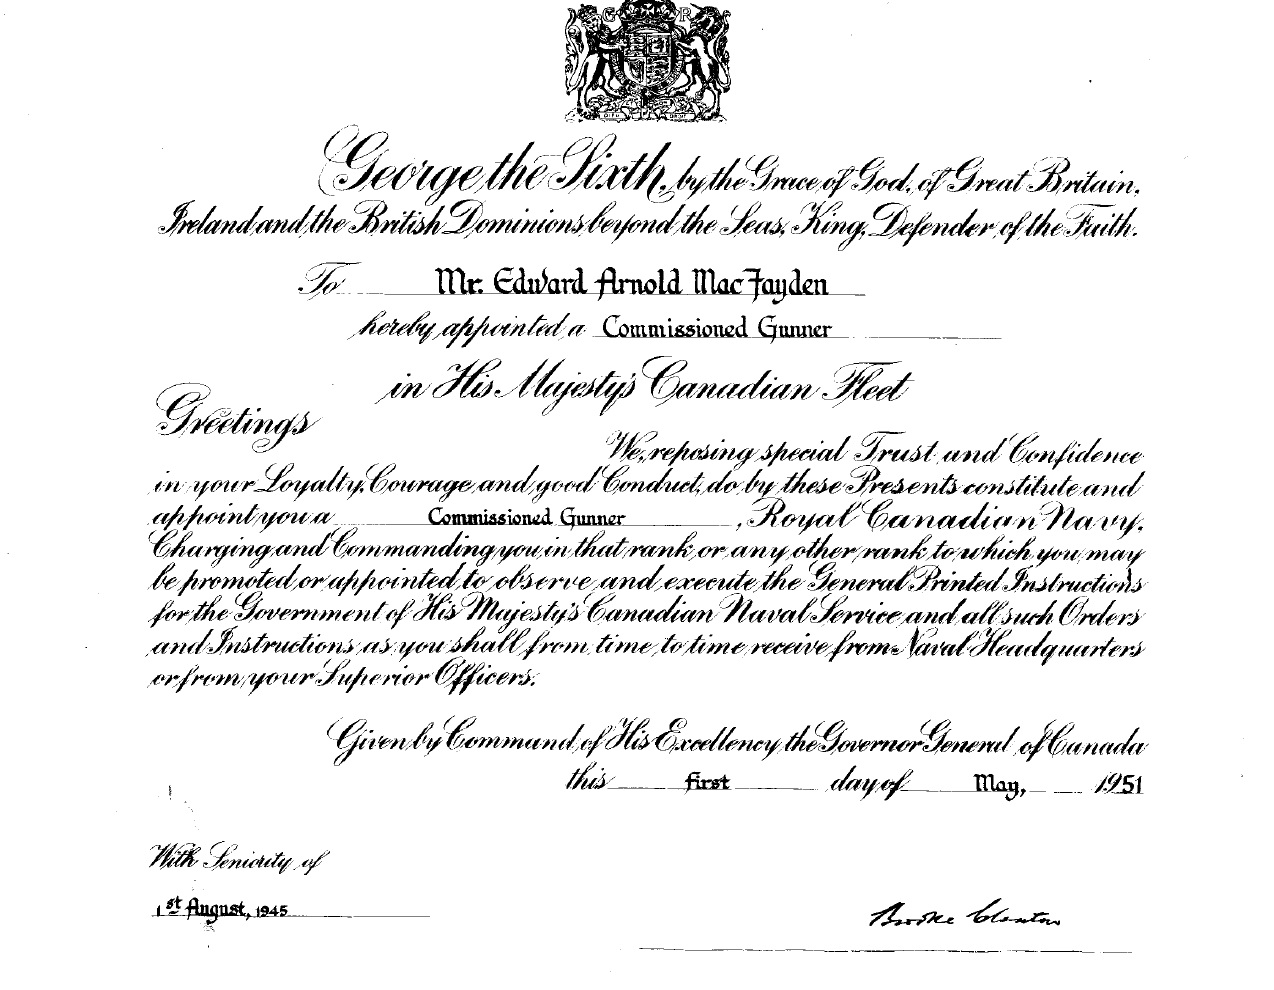 G R
DIEU DROIT
George the Sixth, by the Grace of God, of Great Britain,
Ireland and the British Dominions beyond the Seas, King, Defender of the Faith.
To Mr. Edward Arnold MacFayden
hereby appointed a Commissioned Gunner
in His Majesty's Canadian Fleet
Greetings
We, reposing special Trust and Confidence
in your Loyalty, Courage, and good Conduct, do by these Presents constitute and
appoint you a Commissioned Gunner, Royal Canadian Navy.
Charging and Commanding you in that rank or any other rank to which you may
be promoted or appointed to observe and execute the General Printed Instructions
for the Government of His Majesty's Canadian Naval Service and all such Orders
and Instructions as you shall from time to time receive from Naval Headquarters
or from your Superior Officers.
Given by Command of His Excellency the Governor General of Canada
this first day of May, 1951
With Seniority of
1st August, 1945
Brooke Claxton